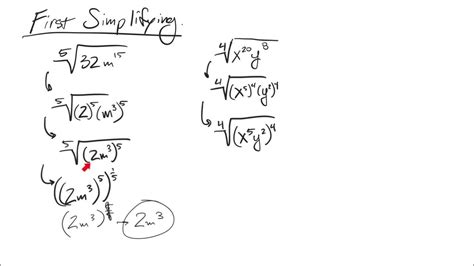 First Simplifying.
⁵√(32m¹⁵)
⁵√((2)⁵(m³)⁵)
⁵√((2m³)⁵)
((2m³)⁵)^(1/5)
(2m³)^(5/5) → 2m³
⁴√(x²⁰y⁸)
⁴√((x⁵)⁴(y²)⁴)
⁴√((x⁵y²)⁴)